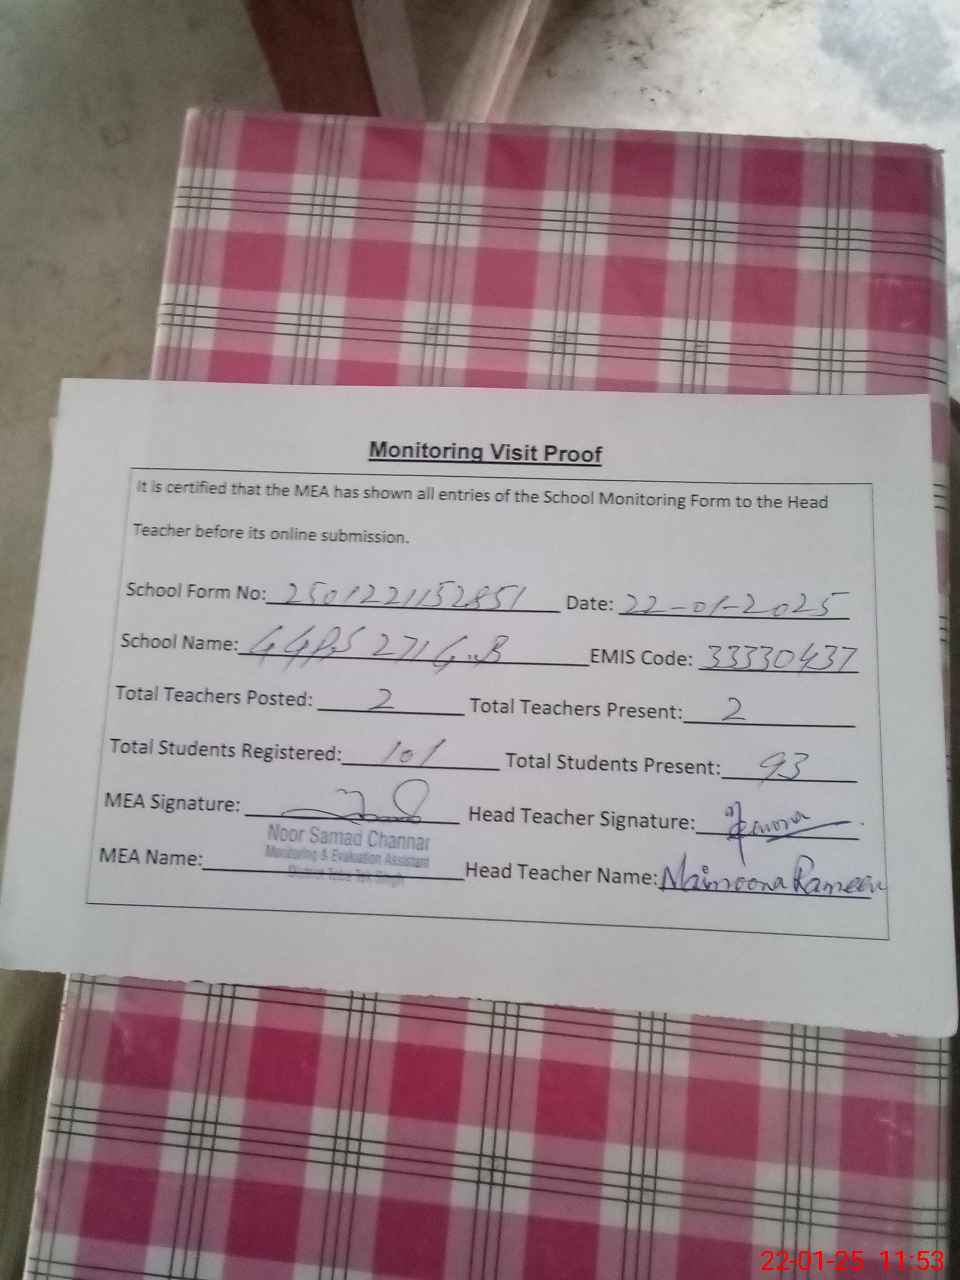 Monitoring Visit Proof
It is certified that the MEA has shown all entries of the School Monitoring Form to the Head
Teacher before its online submission.
School Form No: 2501221152851 Date: 22-01-2025
School Name: GGPS 271 G.B EMIS Code: 33330437
Total Teachers Posted: 2 Total Teachers Present: 2
Total Students Registered: 101 Total Students Present: 93
MEA Signature: Head Teacher Signature:
Noor Samad Channar
Monitoring & Evaluation Assistant
District Toba Tek Singh
MEA Name: Head Teacher Name: Maimoona Rameen
22-01-25 11:53